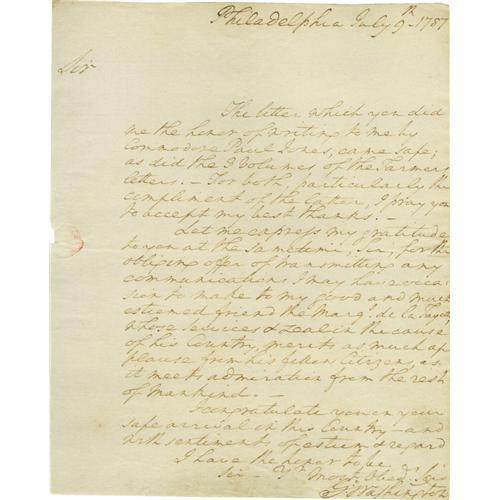 Philadelphia July 9th. 1787
Sir
The letter which you did
me the honor of writing to me by
Commodore Paul Jones, came safe;
as did the 3 Volumes of the Farmers
letters. – For both, particularly the
complement of the latter, I pray you
to accept my best thanks. –
Let me express my gratitude
to you at the same time, Sir, for the
obliging offer of transmitting any
communications I may have occa
sion to make to my good and much
esteemed friend the Marqs. de la Fayette,
whose services & zeal in the cause
of his Country, merits as much ap
plause from his fellow Citizens, as
it meets admiration from the rest
of Mankind. –
I congratulate you on your
safe arrival in this Country – and
with sentiments of esteem & regard
I have the honor to be
Sir – Yr Most Obedt Ser
G Washington